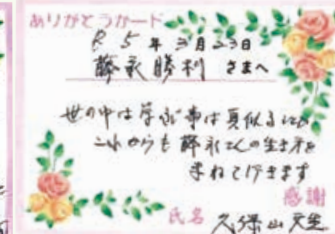 ありがとうカード
R5年3月23日
藤永勝利 さまへ
世の中は学ぶ事は真似る
これからも藤永さんの生き方を
まねて行きます
感謝
氏名 久保山